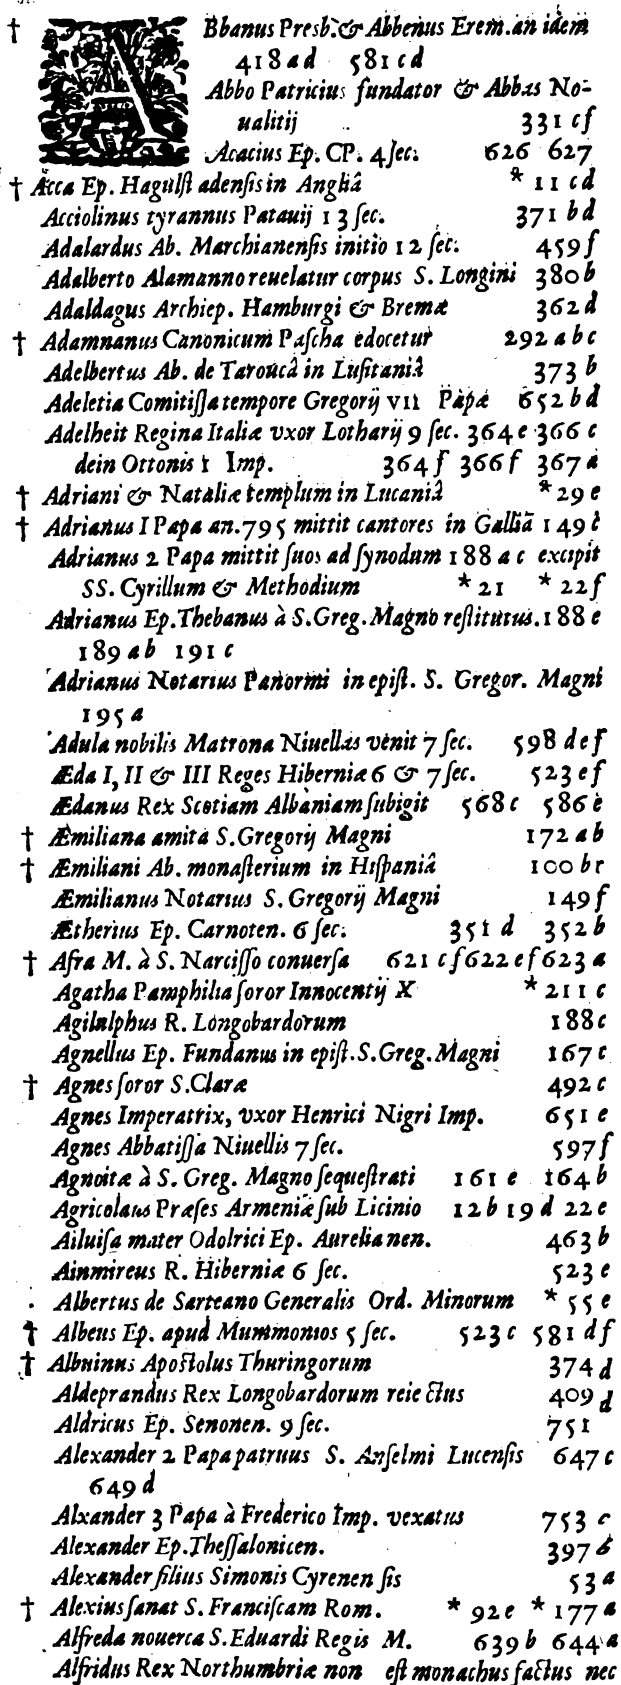 † ABbanus Presb. & Abbenus Erem. an idem
418 a d 581 c d
Abbo Patricius fundator & Abbas No-
ualitij 331 c f
Acacius Ep. CP. 4 ſec. 626 627
† Acca Ep. Hagulſtadenſis in Angliâ * 11 c d
Acciolinus tyrannus Patauij 13 ſec. 371 b d
Adalardus Ab. Marchianenſis initio 12 ſec. 459 f
Adalberto Alamanno reuelatur corpus S. Longini 380 b
Adaldagus Archiep. Hamburgi & Bremæ 362 d
† Adamnanus Canonicum Paſcha edocetur 292 a b c
Adelbertus Ab. de Taroucâ in Luſitaniâ 373 b
Adeletia Comitiſſa tempore Gregorij VII Papæ 652 b d
Adelheit Regina Italiæ vxor Lotharij 9 ſec. 364 e 366 c
dein Ottonis I Imp. 364 f 366 f 367 a
† Adriani & Nataliæ templum in Lucaniâ * 29 e
† Adrianus I Papa an. 795 mittit cantores in Galliâ 149 e
Adrianus 2 Papa mittit ſuos ad ſynodum 188 a c excipit
SS. Cyrillum & Methodium * 21 * 22 f
Adrianus Ep. Thebanus à S. Greg. Magno reſtitutus. 188 e
189 a b 191 c
Adrianus Notarius Panormi in epiſt. S. Gregor. Magni
195 a
Adula nobilis Matrona Niuellas venit 7 ſec. 598 d e f
Æda I, II & III Reges Hiberniæ 6 & 7 ſec. 523 e f
Ædanus Rex Scotiam Albaniam ſubigit 568 c 586 e
† Æmiliana amita S. Gregorij Magni 172 a b
† Æmiliani Ab. monaſterium in Hiſpaniâ 100 b r
Æmilianus Notarius S. Gregorij Magni 149 f
Ætherius Ep. Carnoten. 6 ſec. 351 d 352 b
† Afra M. à S. Narciſſo conuerſa 621 c f 622 e f 623 a
Agatha Pamphilia ſoror Innocentij X * 211 c
Agilulphus R. Longobardorum 188 c
Agnellus Ep. Fundanus in epiſt. S. Greg. Magni 167 c
† Agnes ſoror S. Claræ 492 c
Agnes Imperatrix, vxor Henrici Nigri Imp. 651 e
Agnes Abbatiſſa Niuellis 7 ſec. 597 f
Agnoitæ à S. Greg. Magno ſequeſtrati 161 e 164 b
Agricolaus Præſes Armeniæ ſub Licinio 12 b 19 d 22 e
Ailuiſa mater Odolrici Ep. Aurelianen. 463 b
Ainmireus R. Hiberniæ 6 ſec. 523 e
Albertus de Sarteano Generalis Ord. Minorum * 55 e
† Albeus Ep. apud Mummonios 5 ſec. 523 c 581 d f
† Albuinus Apoſtolus Thuringorum 374 d
Aldeprandus Rex Longobardorum reiectus 409 d
Aldricus Ep. Senonen. 9 ſec. 751
Alexander 2 Papa patruus S. Anſelmi Lucenſis 647 c
649 d
Alxander 3 Papa à Frederico Imp. vexatus 753 c
Alexander Ep. Theſſalonicen. 397 b
Alexander filius Simonis Cyrenenſis 53 a
† Alexius ſanat S. Franciſcam Rom. * 92 e * 177 a
Alfreda nouerca S. Eduardi Regis M. 639 b 644 a
Alfridus Rex Northumbriæ non eſt monachus factus nec